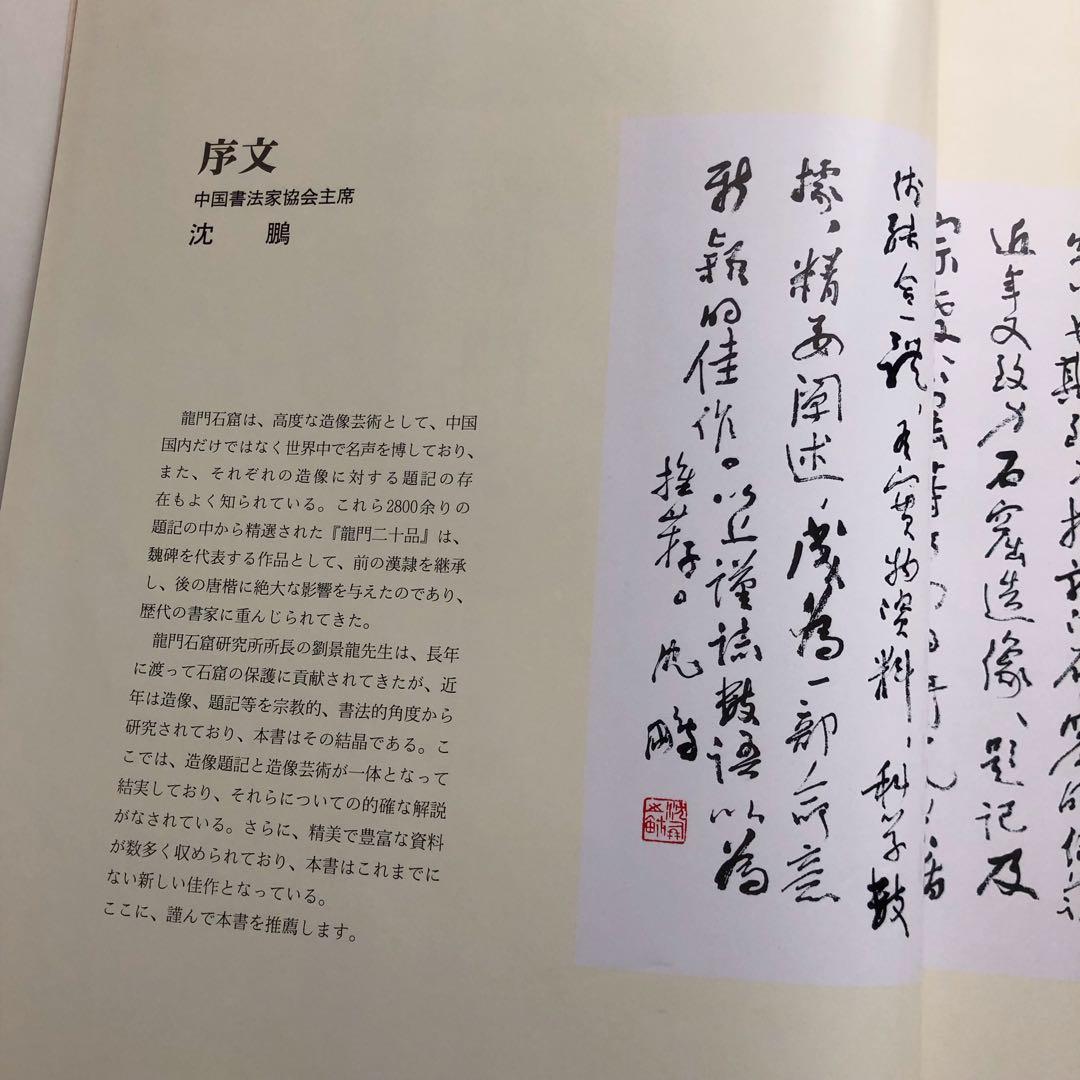 序文
中国書法家協会主席
沈 鵬
龍門石窟は、高度な造像芸術として、中国
国内だけではなく世界中で名声を博しており、
また、それぞれの造像に対する題記の存
在もよく知られている。これら2800余りの
題記の中から精選された『龍門二十品』は、
魏碑を代表する作品として、前の漢隷を継承
し、後の唐楷に絶大な影響を与えたのであり、
歴代の書家に重んじられてきた。
龍門石窟研究所所長の劉景龍先生は、長年
に渡って石窟の保護に貢献されてきたが、近
年は造像、題記等を宗教的、書法的角度から
研究されており、本書はその結晶である。こ
こでは、造像題記と造像芸術が一体となって
結実しており、それらについての的確な解説
がなされている。さらに、精美で豊富な資料
が数多く収められており、本書はこれまでに
ない新しい佳作となっている。
ここに、謹んで本書を推薦します。
近年又致力石窟造像、題记及
術融合一體，有實物資料，科学数
據，精要阐述，成為一部命意
新穎的佳作。以上謹誌数语以為
推荐。沈鵬